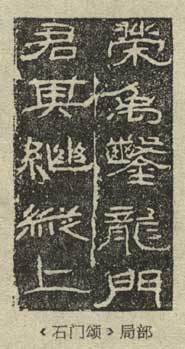 榮禹鑿龍門
君其繼縱上
《石门颂》局部